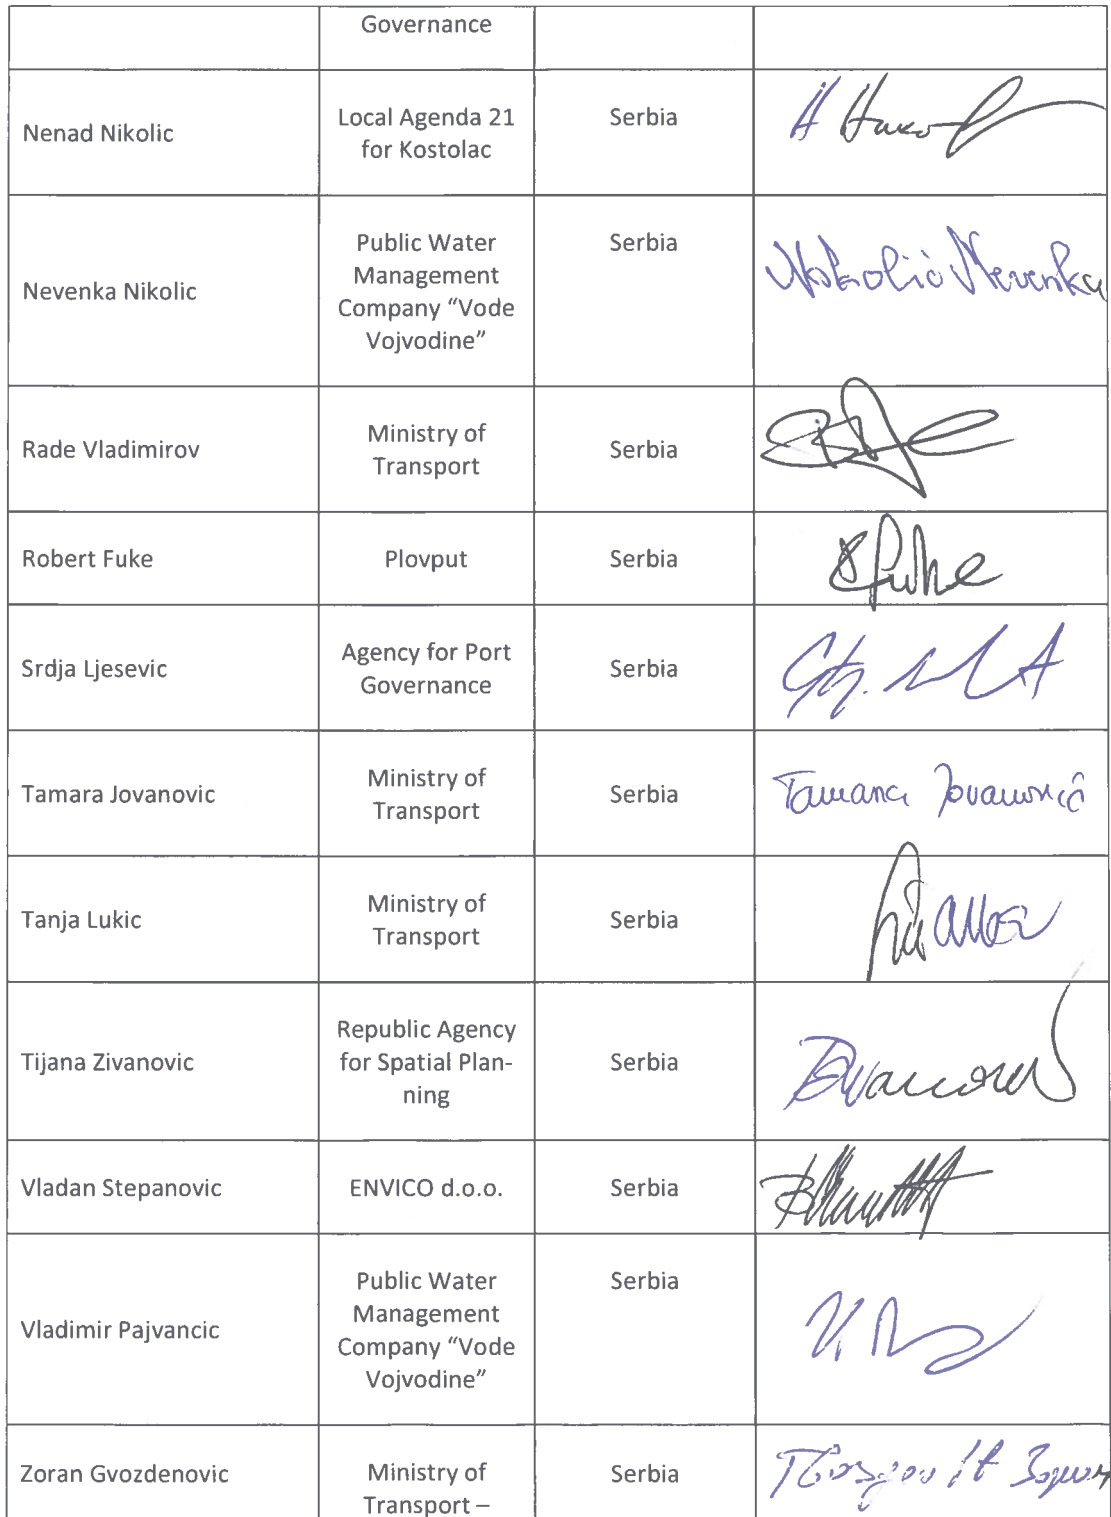 Governance
Nenad Nikolic
Local Agenda 21
for Kostolac
Serbia
Nevenka Nikolic
Public Water
Management
Company “Vode
Vojvodine”
Serbia
Nikolić Nevenka
Rade Vladimirov
Ministry of
Transport
Serbia
Robert Fuke
Plovput
Serbia
Fuke
Srdja Ljesevic
Agency for Port
Governance
Serbia
Tamara Jovanovic
Ministry of
Transport
Serbia
Tamara Jovanović
Tanja Lukic
Ministry of
Transport
Serbia
Tijana Zivanovic
Republic Agency
for Spatial Plan-
ning
Serbia
Vladan Stepanovic
ENVICO d.o.o.
Serbia
Vladimir Pajvancic
Public Water
Management
Company “Vode
Vojvodine”
Serbia
Zoran Gvozdenovic
Ministry of
Transport –
Serbia